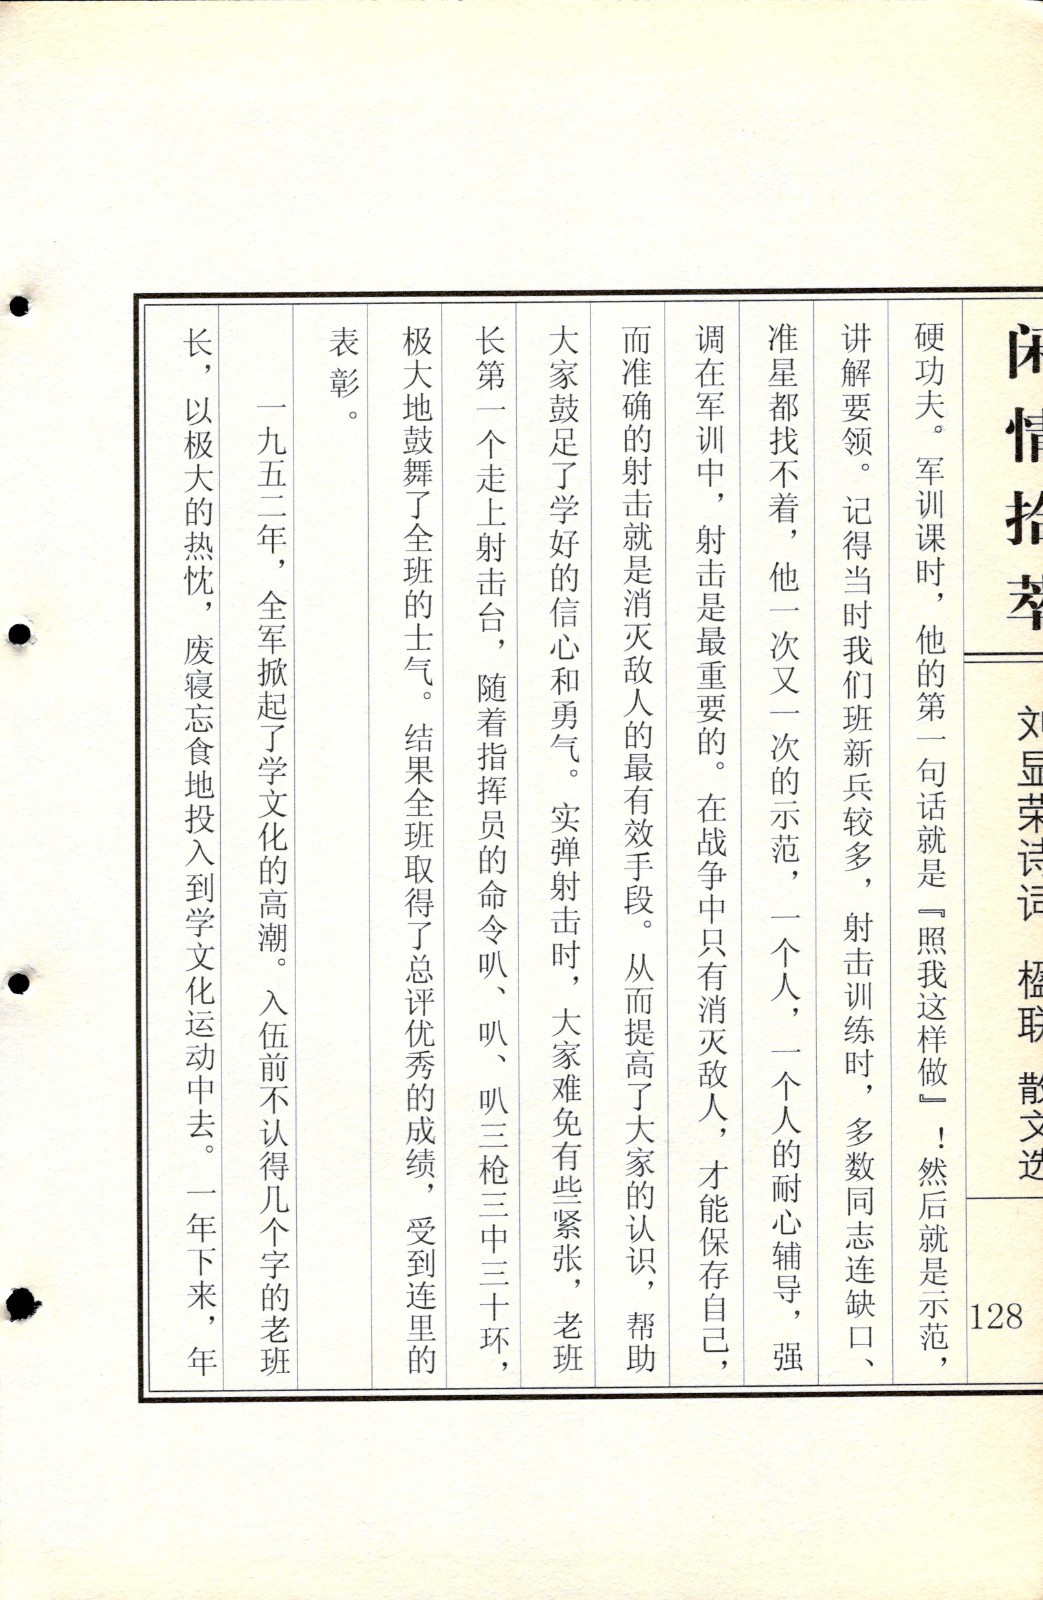 闲情拾萃
刘显荣诗词 楹联 散文选
128
硬功夫。军训课时，他的第一句话就是『照我这样做』！然后就是示范，
讲解要领。记得当时我们班新兵较多，射击训练时，多数同志连缺口、
准星都找不着，他一次又一次的示范，一个人，一个人的耐心辅导，强
调在军训中，射击是最重要的。在战争中只有消灭敌人，才能保存自己，
而准确的射击就是消灭敌人的最有效手段。从而提高了大家的认识，帮助
大家鼓足了学好的信心和勇气。实弹射击时，大家难免有些紧张，老班
长第一个走上射击台，随着指挥员的命令叭、叭、叭三枪三中三十环，
极大地鼓舞了全班的士气。结果全班取得了总评优秀的成绩，受到连里的
表彰。
一九五二年，全军掀起了学文化的高潮。入伍前不认得几个字的老班
长，以极大的热忱，废寝忘食地投入到学文化运动中去。一年下来，年